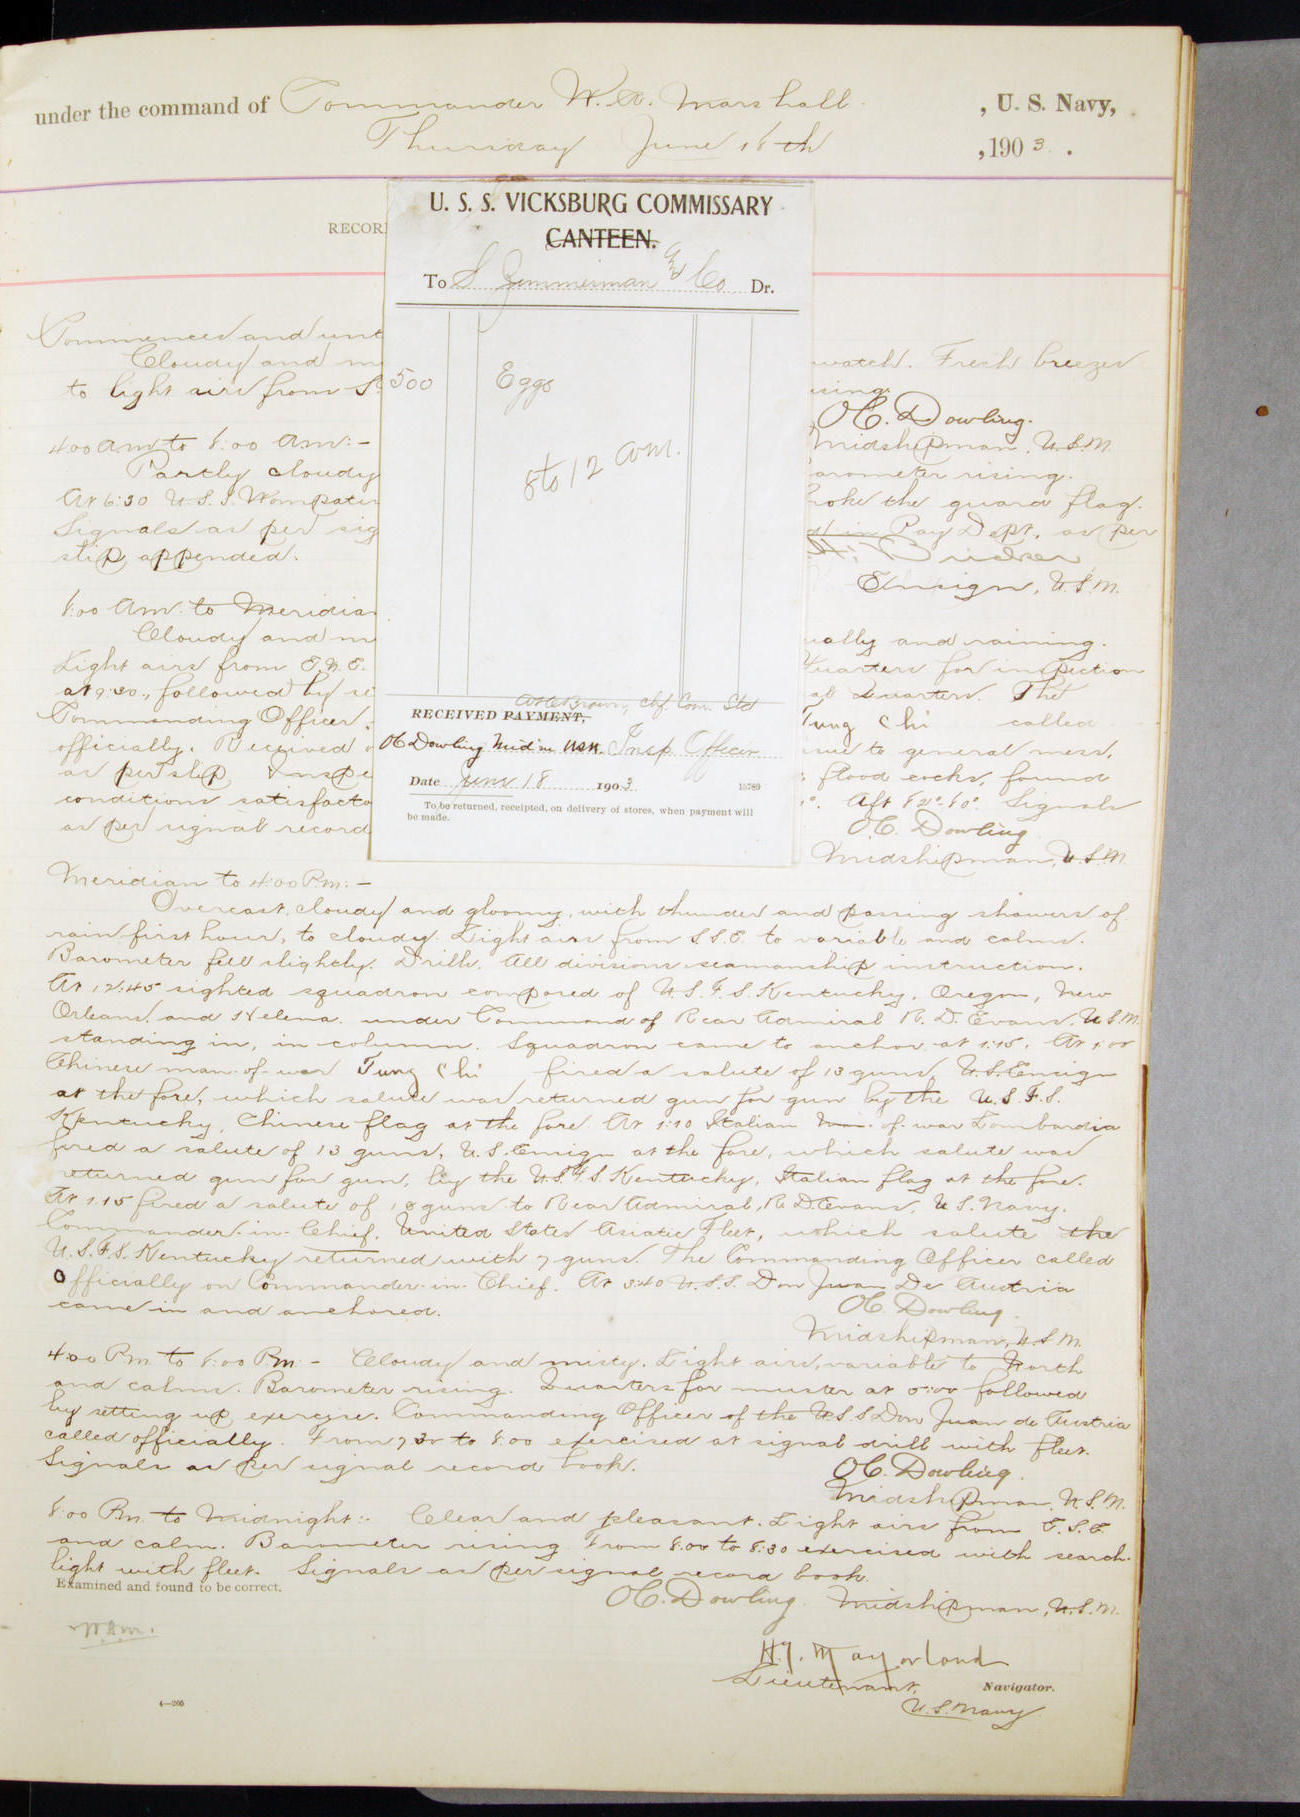 under the command of Commander W. A. Marshall , U. S. Navy,
Thursday June 18th , 1903 .
RECOR
U. S. S. VICKSBURG COMMISSARY
CANTEEN.
To S Zimmerman and Co Dr.
500 Eggs
8 to 12 am.
Chf. Com. Std
RECEIVED PAYMENT,
O C Dowling Mid'n USN. Insp. Officer
Date June 18 1903 15789
To be returned, receipted, on delivery of stores, when payment will
be made.
Commences and unt
Cloudy and m watch. Fresh breezes
to light airs from S. sing.
O.C. Dowling.
Midshipman, U.S.N.
4:00 am to 8:00 am:-
Partly cloudy arometer rising.
At 6:30 U.S.S. Wompatu roke the guard flag.
Signals as per sig in Pay Dept. as per
slip appended.
Ensign, U.S.N.
8:00 Am. to Meridia
Cloudy and m ually and raining.
Light airs from E.N.E. Quarters for inspection
at 9:30, followed by se at Quarters. The
Commanding Officer Tung Chi called
officially. Received to general mess,
as per slip. Inspe flood cocks, found
conditions satisfacto Aft 82°-80°. Signals
as per signal record O.C. Dowling
Midshipman, U.S.N.
Meridian to 4:00 P.m.:-
Overcast, cloudy and gloomy, with thunder and passing showers of
rain first hour, to cloudy. Light airs from S.S.E. to variable and calms.
Barometer fell slightly. Drill. All divisions seamanship instruction.
At 12:45 sighted squadron composed of U.S.F.S. Kentucky, Oregon, New
Orleans, and Helena. under Command of Rear Admiral R. D. Evans, U.S.N.
standing in, in column. Squadron came to anchor at 1:15. At 1:00
Chinese man-of-war Tung Chi fired a salute of 13 guns, U.S. Ensign
at the fore, which salute was returned gun for gun by the U.S.F.S.
Kentucky, Chinese flag at the fore. At 1:10 Italian man-of-war Lombardia
fired a salute of 13 guns, U.S. Ensign at the fore, which salute was
returned gun for gun, by the U.S.F.S. Kentucky, Italian flag at the fore.
At 1:15 fired a salute of guns to Rear Admiral, R. D. Evans, U.S. Navy.
Commander-in-Chief, United States Asiatic Fleet, which salute the
U.S.F.S. Kentucky returned with 7 guns. The Commanding Officer called
officially on Commander-in-Chief. At 3:40 U.S.S. Don Juan De Austria
came in and anchored. O.C. Dowling.
Midshipman, U.S.N.
4:00 P.m. to 8:00 P.m.- Cloudy and misty. Light airs, variable to North
and calms. Barometer rising. Quarters for muster at 5:00 followed
by setting up exercise. Commanding Officer of the U.S.S Don Juan de Austria
called officially. From 7:30 to 8:00 exercised at signal drill with fleet.
Signals as per signal record book. O.C. Dowling.
Midshipman, U.S.N.
8:00 Pm. to Midnight:- Clear and pleasant. Light airs from E.S.E.
and calm. Barometer rising From 8:00 to 8:30 exercised with search-
light with fleet. Signals as per signal record book.
Examined and found to be correct.
O.C. Dowling. Midshipman, U.S.N.
W.A.M.
Lieutenant, Navigator.
U.S. Navy
4—205